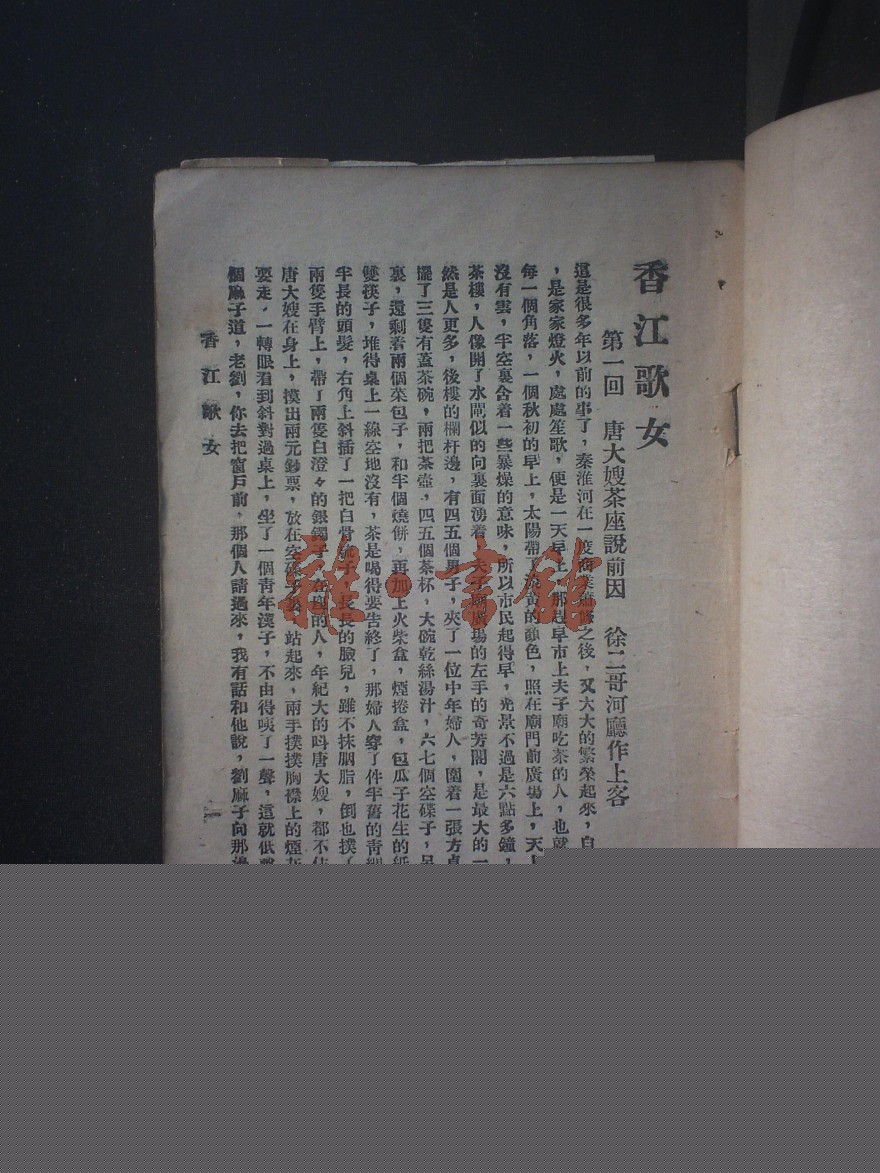 香江歌女
第一回　唐大嫂茶座說前因　徐二哥河廳作上客
這是很多年以前的事了，秦淮河在一度商業蕭條之後，又大大的繁榮起來，自
，是家家燈火，處處笙歌，便是一天早上，那趕早市上夫子廟吃茶的人，也就
每一個角落，一個秋初的早上，太陽帶了淡黃的顏色，照在廟門前廣場上，天上
沒有雲，半空裏含着一些暴燥的意味，所以市民起得早，光景不過是六點多鐘，
茶樓，人像開了水閘似的向裏面湧着，夫子廟廣場的左手的奇芳閣，是最大的一
然是人更多，後樓的欄杆邊，有四五個男子，夾了一位中年婦人，圍着一張方桌
擺了三隻有蓋茶碗，兩把茶壺，四五個茶杯，大碗乾絲湯汁，六七個空碟子，另
裏，還剩着兩個菜包子，和半個燒餅，再加上火柴盒，煙捲盒，包瓜子花生的紙
雙筷子，堆得桌上一線空地沒有，茶是喝得要告終了，那婦人穿了件半舊的青綢
半長的頭髮，右角上斜插了一把白骨梳子，長長的臉兒，雖不抹胭脂，倒也撲了
兩隻手臂上，帶了兩隻白澄々的銀鐲子，在座的人，年紀大的叫唐大嫂，都不住
唐大嫂在身上，摸出兩元鈔票，放在空碟子裏，站起來，兩手撲撲胸襟上的煙灰
要走，一轉眼看到斜對過桌上，坐了一個青年漢子，不由得咦了一聲，這就低聲
個麻子道，老劉，你去把窗戶前，那個人請過來，我有話和他說，劉麻子向那邊
香江歌女
一
雜·書館